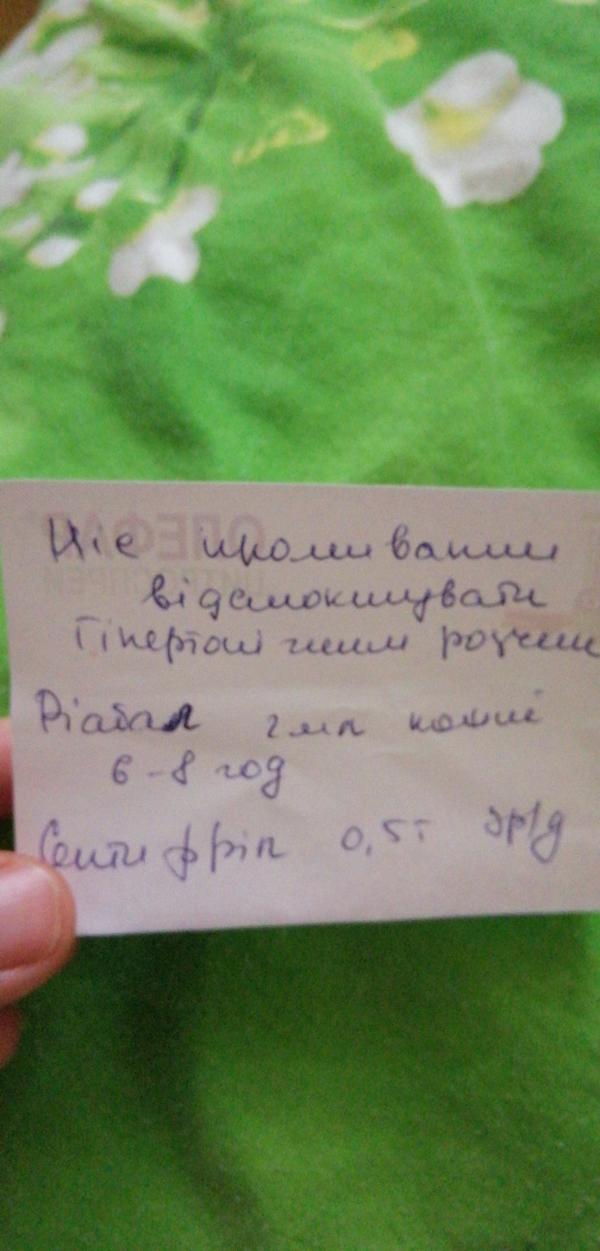 Ніс промивати
відсмоктувати
Гіпертонічним розчин
Ріабал 2 мл кожні
6-8 год
0,5т 3р/д
ОЛЕФАР